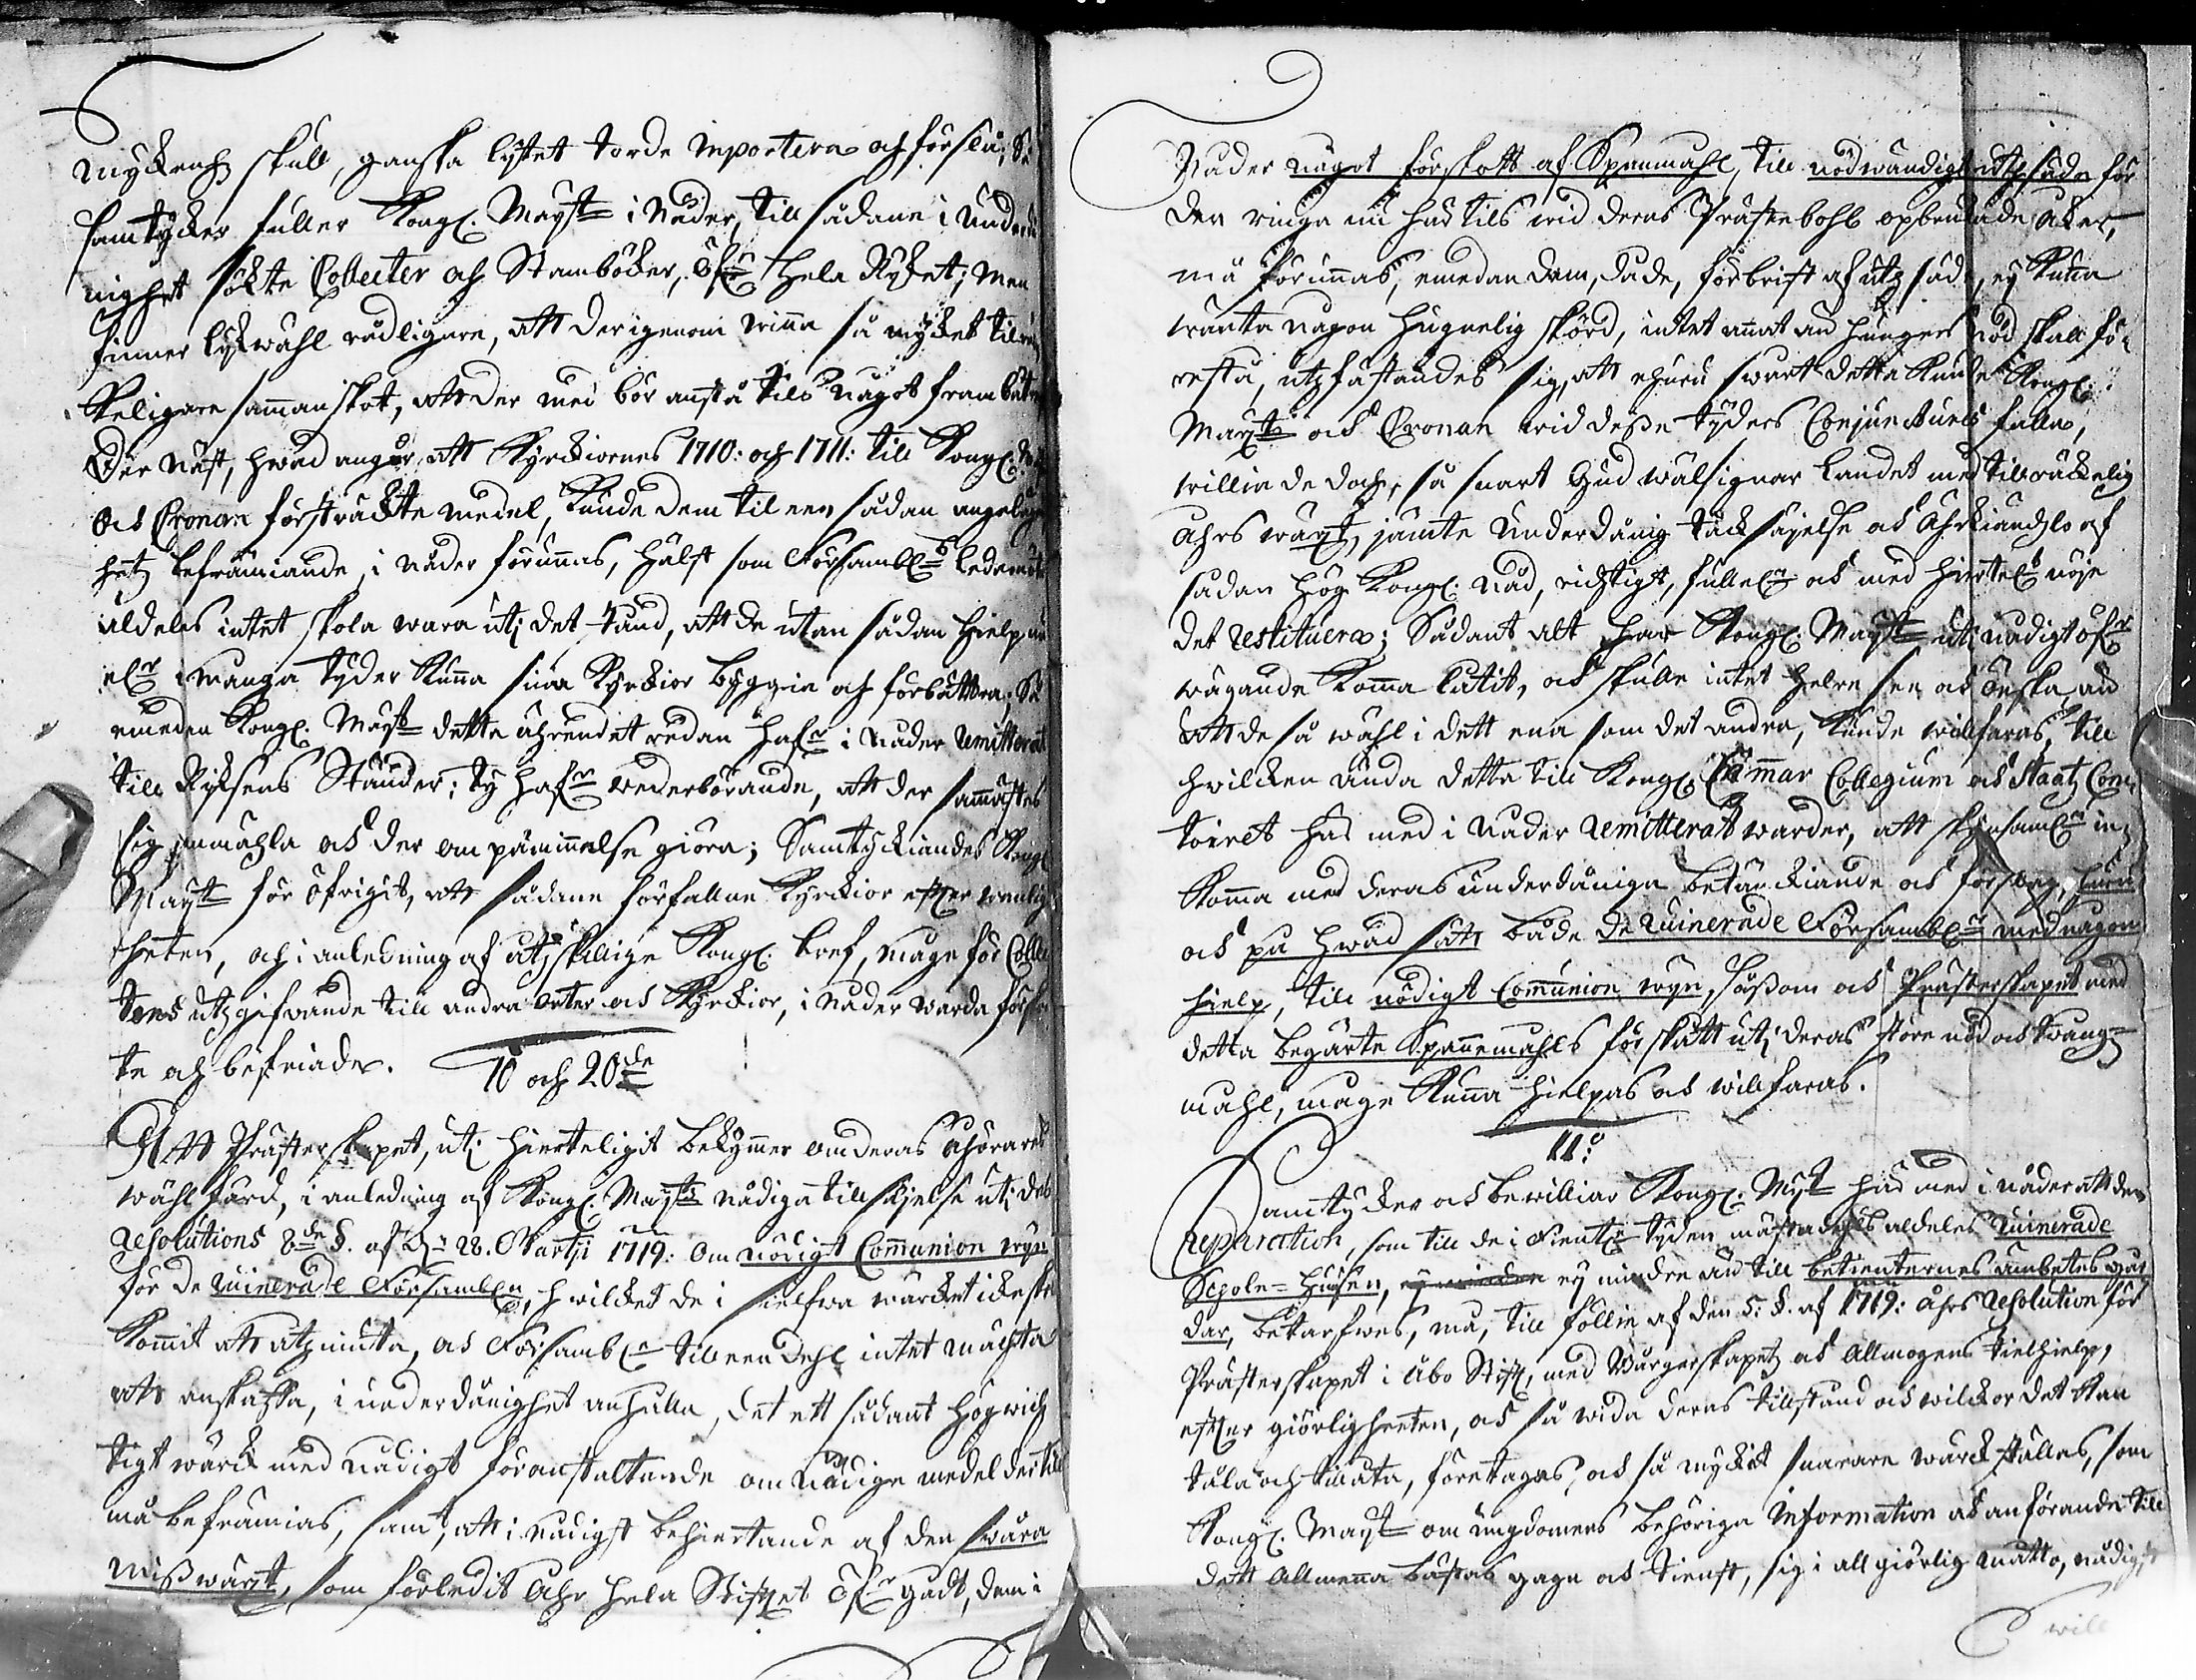 myckenhz skull, ganska lijtet torde importera och förslå; Så
samtycker fuller Kongl. Mayst:tt i Nåder, till sådane i underdå
nighet sökte Collecter och Stamböcker, öfr hela Ryket; men
finner lijkwähl rådligare, att derigenom winna så myket tilrä
keligare sammanskot, att der med bör anstå tils något frambätr
Der näst, hwad angår, att Kyrckiornes 1710: och 1711: till Kongl. M
och Cronan försträckte medel, kunde dem til een sådan angeläge
hetz befrämiande, i nåder förunnas, hälst som Försambl:s ledamöte
aldeles intet skola wara uti det stånd, att de utan sådan hielp nu
elr i många tyder kunna sina Kyrckior byggia och förbättra; Så
emedan Kongl. Mayst:tt detta ährendet redan hafr i Nåder remitterat
till Ryksens Ständer; ty hafr wederbörande, att der sammastes
sig anmähla och der om påminnelse giöra; Samtyckiandes Kongl
Mayt:tt för öfrigit, att sådane förfallne Kyrckior efter wanlig
heten, och i anledning af åtskillige Kongl. bref, måge för Colle
tens utgifwande till andra orter och Kyrckior, i nåder warda förskon
te och befriade.
10 och 20de
Att Prästerskapet, uti hierteligit bekymmer om deras åhörares
wählfärd, i anledning af Kongl. Mayt:tz nådiga tillsäjelse uti des
Resolutions 8de §. af d: 28. Martij 1719: om nödigt Communion wyn
för de ruinerade Församblr, hwilcket de i sielfwa wärcket icke sko
kommit att utz niuta, och Församblr till een dehl intet mächta
att anskaffa, i underdånighet anhålla, det ett sådant högwich
tigt wärck med nådigt föranstaltande om nödige medel der till
må befrämias, samt, att i nådigst behiertande af den swåra
misswäxt, som förledit åhr hela Stiftet öfr gådt, dem i
Nåder något förskott af Spanmahl, till nödwändigt utsäde för
den ringa nu här tils wid deras Prästebohl opbrukade åker,
må förunnas, emedan dem, både, för brist af utzsäde, ej kunna
wänta någon hugnelig skörd, intet annat än hungers nöd skall fö
restå, utfästandes sig, att ehuru swårt detta kunde Kongl:
Mayt:tt och Cronan wid desse tyders Conjuncturer falla,
willia de doch, så snart Gud wälsignar landet med tillräckelig
åhrswäxt, jämte underdånig täcksäjelse och åhrkiändzlo af
sådan hög Kongl. nåd, richtigt, fullel:n och med hiertel:t nöje
det restituera; Sådant alt har Kongl. Mayst:tt uti nådigt öfr
wägande komma låtit, och skulle intet helre see och önska, än
att de så wähl i dett ena som det andra, kunde willfaras, till
hwilcken ända detta till Kongl. Cammar Collegium och Staatz Con
toiret här med i nåder remitterat warder, att skynsaml:n in
komma med deras underdåniga betänckiande och förslag, huru
och på hwad sätt både de ruinerade Församblr med någon
hielp, till nödigt Communion wyn, såssom och Prästerskapet med
detta begärte Spannemahls förskått uti deras store nöd och trång
mahl, måge kunna hielpas och willfaras.
11:o
Samtycker och bewilliar Kongl. Myt:tt här med i nåder att den
reparation, som till de i Fientl:n tyden mästadehls aldeles ruinerade
Schole-Husen, ey minder ey mindre än till betienternes ämbetes går
dar, betarfwes, må, till föllie af den 5: §. af 1719: åhrs resolution för
Prästerskapet i Åbo Stift, med Borgerskapetz och Allmogens tielhielp,
efter giörligheeten, och så wida deras tillstånd och wilckor det kan
tåla och tillåta, företagas, och så myckit snarare wärckställas, som
Kongl. Mayst:tt om ungdomens behöriga information och anförande till
dett Allmenna bästas gagn och tienst, sig i all giörlig måtto, nådigst
will